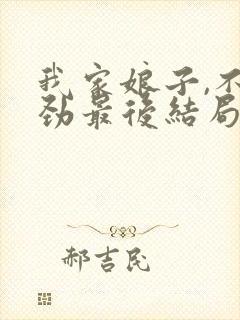 我家娘子,不
劲最後結局
郝吉民